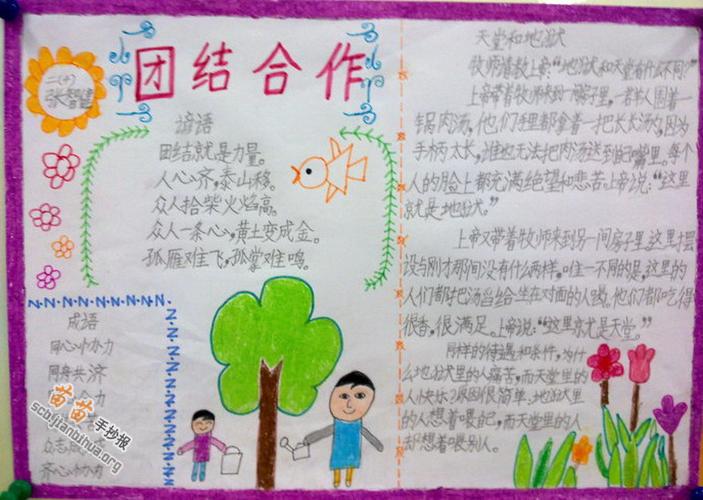 二(十)
张智建
团结合作
谚语
团结就是力量。
人心齐,泰山移。
众人拾柴火焰高。
众人一条心,黄土变成金。
孤雁难飞,孤掌难鸣。
成语
同心协力
同舟共济
力
众志成
齐心协力
苗苗手抄报
scbijianbihua.org
天堂和地狱
牧师请教上帝:“地狱和天堂有什么不同?”
上帝带着牧师来到一间房子里,一群人围着一
锅肉汤,他们手里都拿着一把长长汤勺,因为
手柄太长,谁也无法把肉汤送到自己嘴里。每个
人的脸上都充满绝望和悲苦。上帝说:“这里
就是地狱。”
上帝又带着牧师来到另一间房子里,这里摆
设与刚才那间没有什么两样,唯一不同的是,这里的
人们都把汤舀给坐在对面的人喝。他们都吃得
很香,很满足。上帝说:“这里就是天堂。”
同样的待遇和条件,为什
么地狱里的人痛苦,而天堂里的
人快乐?原因很简单:地狱里
的人想着喂自己,而天堂里的人
却想着喂别人。